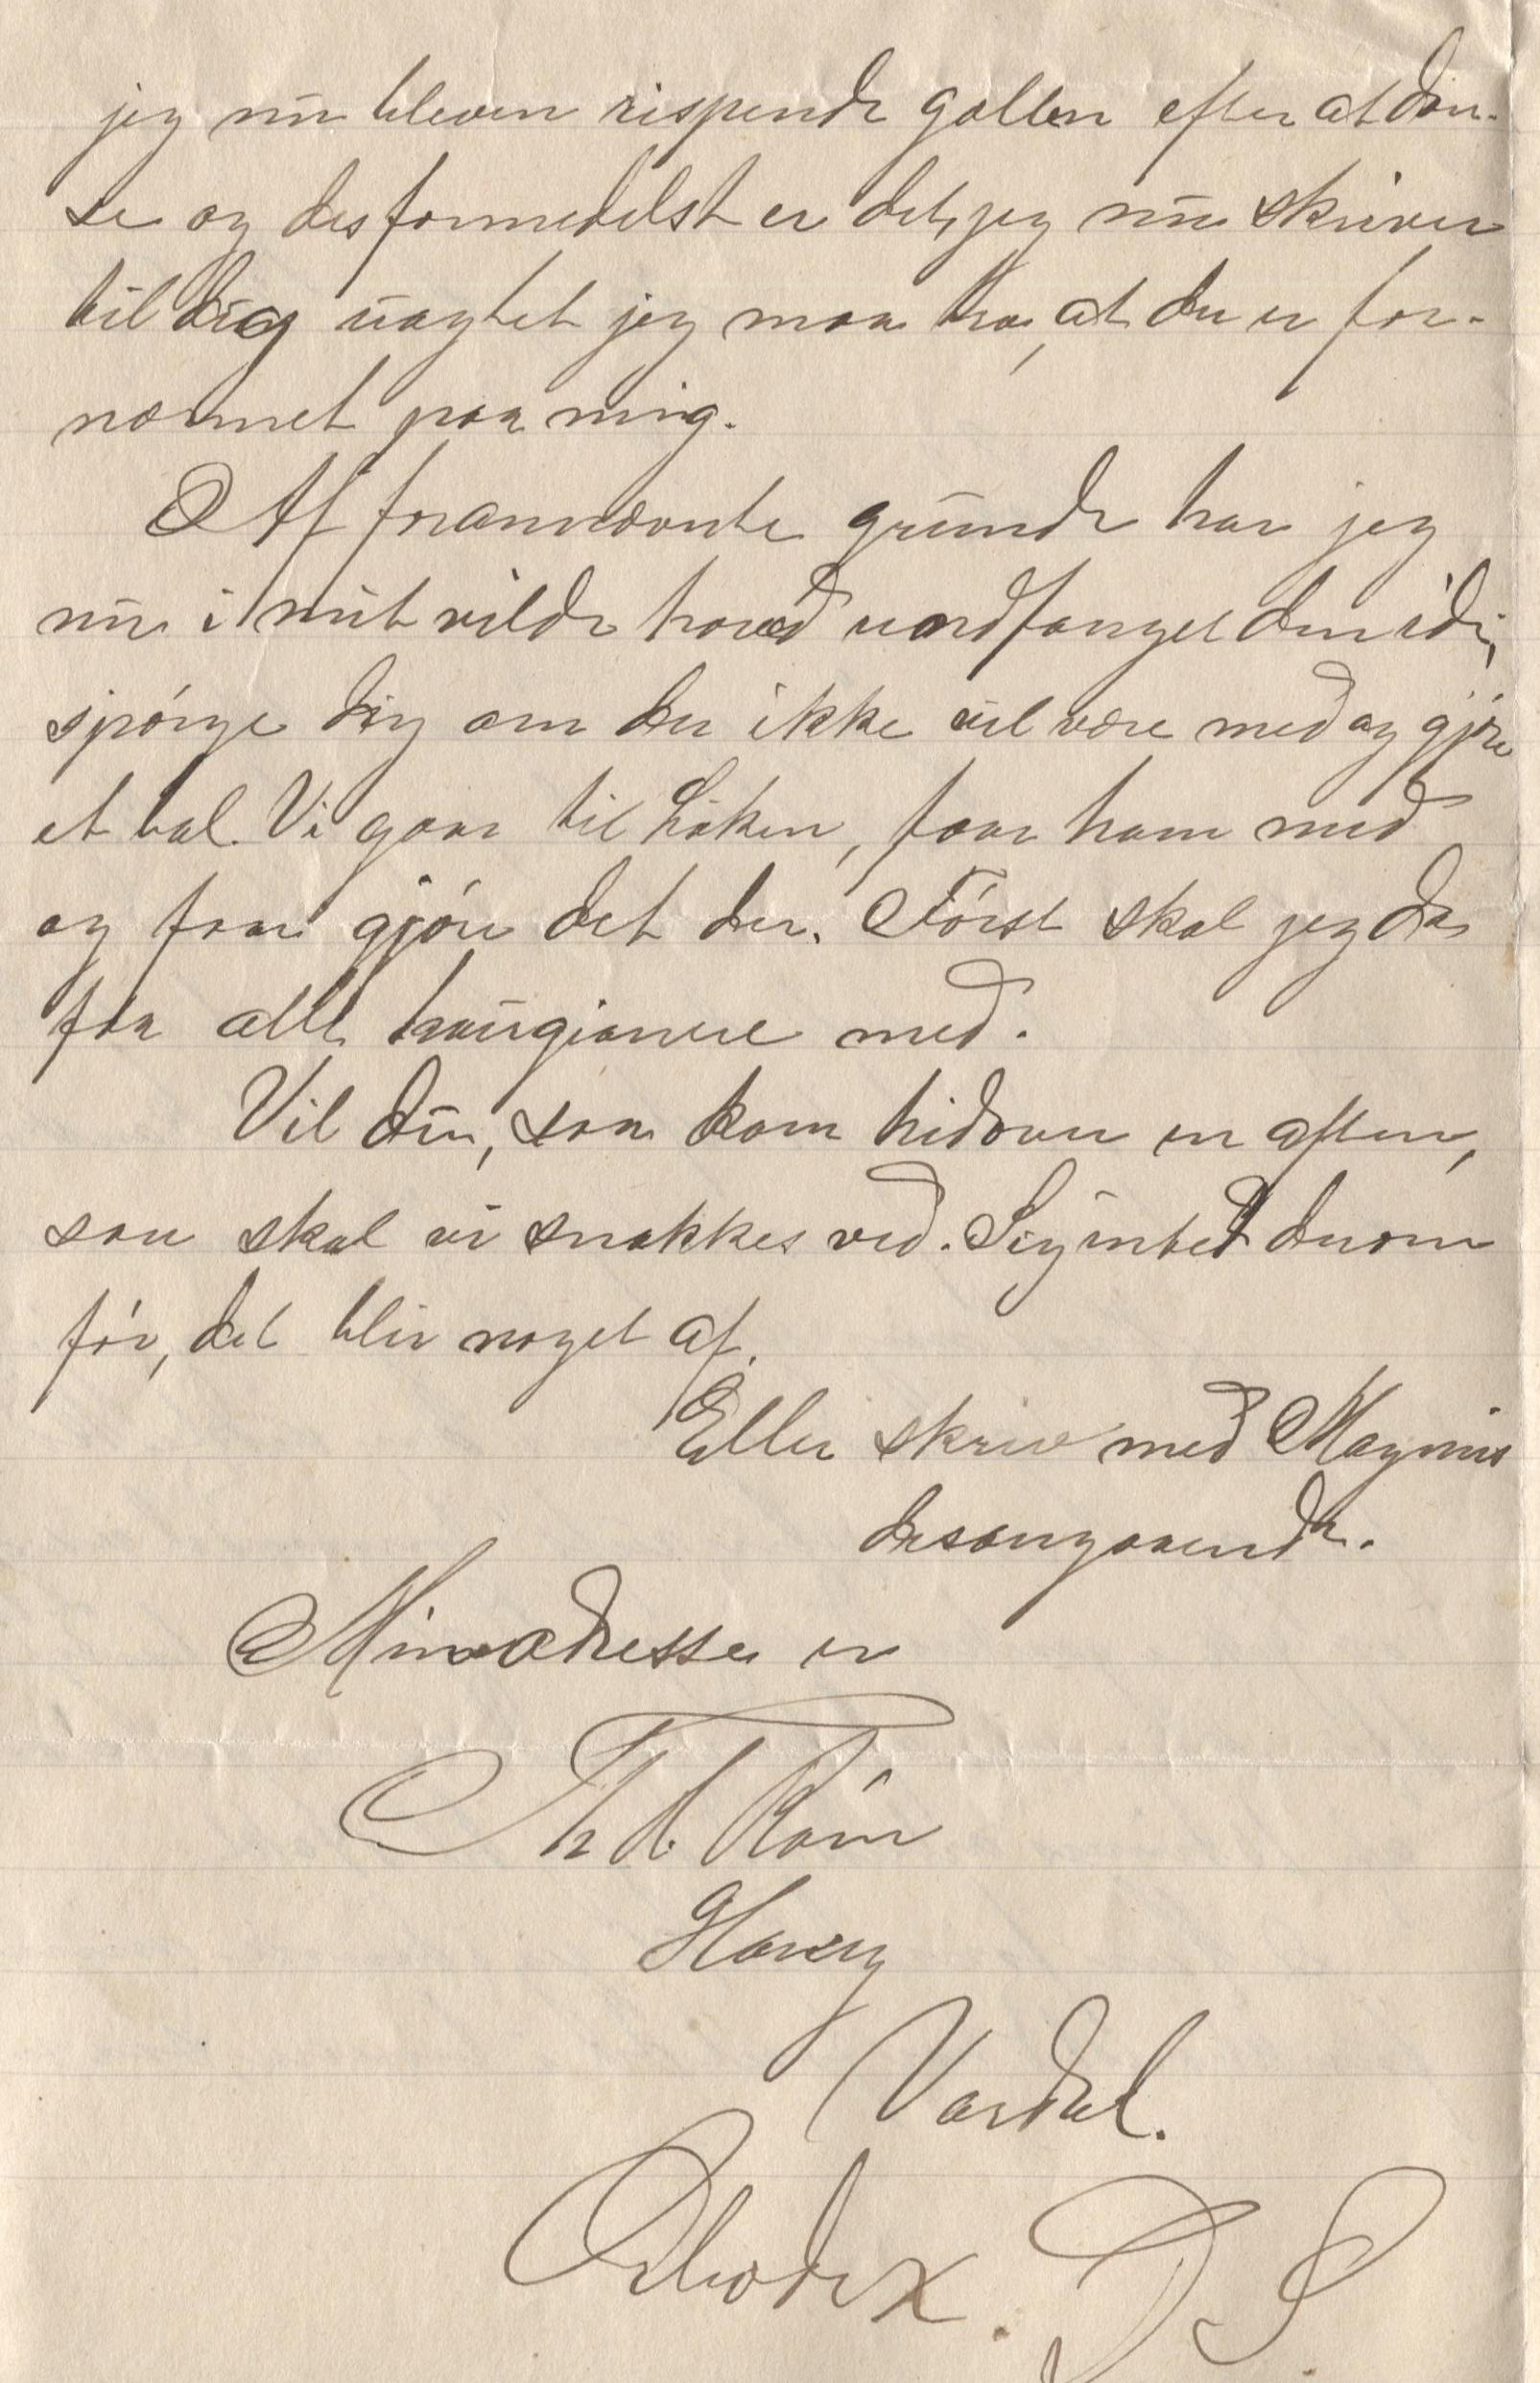 jeg nu bleven rispende gallen efter at dan-
se og des formedelst er det, jeg nu skriver
til dig uagtet jeg maa tro, at du er for-
nærmet paa mig.
Af forannævnte grunde har jeg
nu i mit vilde hoved undfanget den ide,
spørge dig om du ikke vil være med og gjøre
et bal. Vi gaar til Løken, faar ham med
og faar gjøre det der. Først skal jeg da
faa alle haugianere med.
Vil du, saa kom hidover en aften,
saa skal vi snakkes ved. Sig intet derom
før, det blir noget af.
Eller skriv med Magnus
desangaaende.
Min adresse er
Th
Vardal.
P. S.